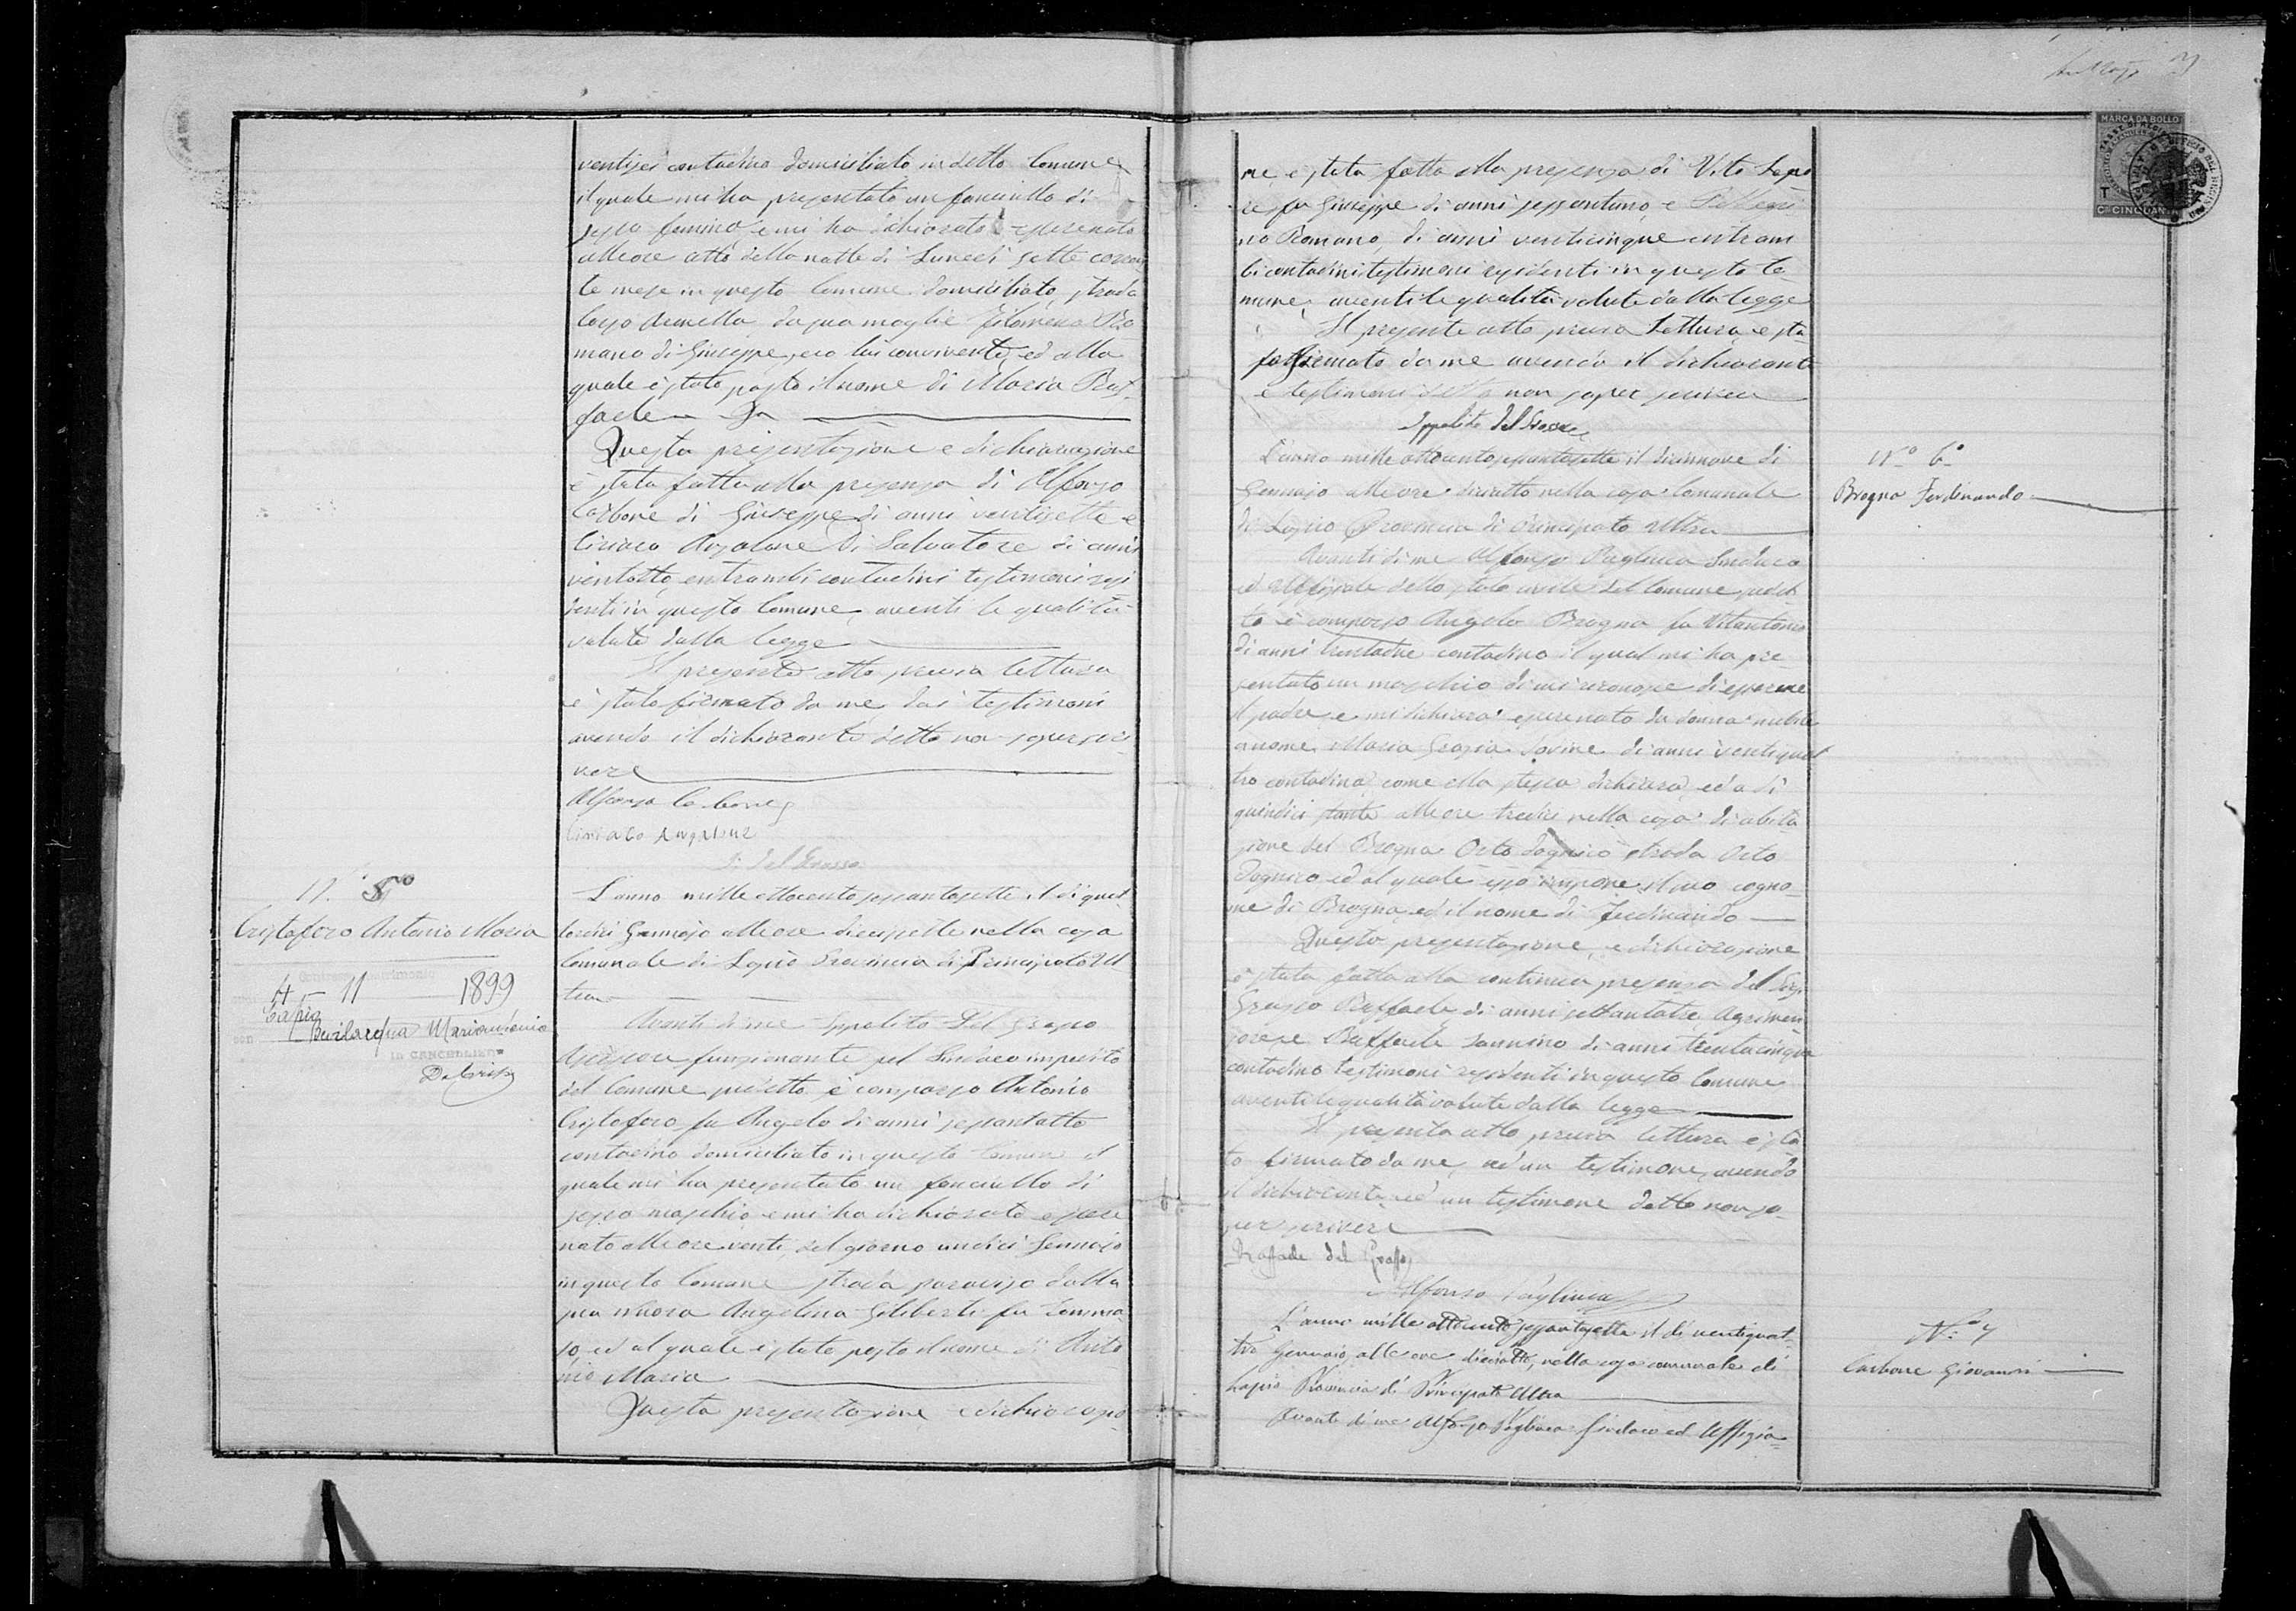 ventisei contadino domiciliato in detto Comune
il quale mi ha presentato un fanciullo di
sesso femineo e mi ha dichiarato essere nato
alle ore otto della notte di Lunedi sette corren
te mese in questo Comune domiciliato strada
da sua moglie Filomena Ro
mano di Giuseppe, seco lui convivente, ed alla
quale è stato posto il nome di Maria Raf-
faele
Questa presentazione e dichiarazione
è stata fatta alla presenza di Alfonso
Carbone di Giuseppe di anni ventisette e
Ciriaco Anzalone di Salvatore di anni
ventotto, entrambi contadini testimoni resi
denti in questo Comune, aventi le qualità
volute dalla legge
Il presente atto previa lettura
è stato firmato da me, dai testimoni
avendo il dichiarante detto non saper scri
vere
Alfonso Carbone
Ciriaco Anzalone
I. Del Grosso
N. 5°
Cristofaro Antonio Maria
4 - 11 1899
Lapio
con Bevilacqua Mariantonia
IL CANCELLIERE
L'anno mille ottocento sessantasette il dì quat
tordici Gennajo alle ore diecisette nella casa
Comunale di Lapio Provincia di Principato Ul
tra
Avanti di me Ippolito Del Grosso
Assessore funzionante pel Sindaco impedito
del Comune predetto è comparso Antonio
Cristofaro fu Angelo di anni sessantotto
contadino domiciliato in questo Comune il
quale mi ha presentato un fanciullo di
sesso maschio, e mi ha dichiarato essere
nato alle ore venti, del giorno undici Gennajo
in questo Comune strada paraviso dalla
sua nuora Angelina Giliberti fu Tomma
so, ed al quale è stato posto il nome di Anto
nio Maria
Questa presentazione e dichiarazio
ne, è stata fatta alla presenza di Vito Lepo
re fu Giuseppe di anni sessantuno, e Pellegri
no Romano, di anni venticinque entram
bi contadini testimoni residenti in questo Co
mune, aventi le qualità volute dalla legge
Il presente atto previa lettura, è sta
to firmato da me avendo il dichiarante
e testimoni detto non saper scrivere
Ippolito Del Grosso
N.° 6°
Brogna Ferdinando
L'anno mille ottocento sessantasette il diciannove di
Gennajo alle ore diciotto nella casa Comunale
di Lapio Provincia di Principato Ultra
Avanti di me Alfonso Pagliuca Sindaco
ed Uffiziale dello stato civile del Comune predet
to è comparso Angelo Brogna fu Vitantonio
di anni trentadue contadino il qual mi ha pre
sentato un maschio di cui riconosce di esserne
il padre e mi dichiara essere nato da donna nubile
a nome Maria Grazia Iovine di anni ventiquat
tro contadina, come ella stessa dichiara, ed a dì
quindici stante alle ore tredici nella casa di abita
zione del Brogna strada Orto
ed al quale esso impone il suo cogno
me di Brogna, ed il nome di Ferdinando
Questa presentazione, e dichiarazione
è stata fatta alla continua presenza del
Grosso Raffaele di anni settantatre Agrimen
sore, e Raffaele Iannino di anni trentacinque
contadino testimoni residenti in questo Comune
aventi le qualità volute dalla legge
Il presente atto previa lettura è sta
to firmato da me, ed un testimone, avendo
il dichiarante, ed un testimone detto non sa
per scrivere
Raffaele Del Grosso
Alfonso Pagliuca
N.° 7
Carbone Giovanni
L'anno mille ottocento sessantasette il dì ventiquat-
tro Gennaio, alle ore diciotto, nella casa comunale di
Lapio Provincia di Principato Ultra
Avanti di me Alfonso Pagliuca Sindaco ed Uffizia-
MARCA DA BOLLO
Cmi CINQUANTA